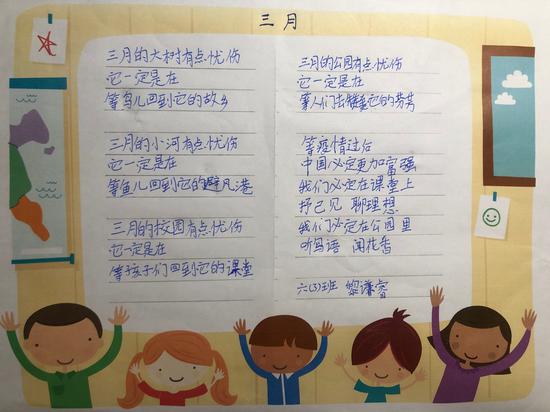 三月
三月的大树有点忧伤
它一定是在
等鸟儿回到它的故乡
三月的小河有点忧伤
它一定是在
等鱼儿回到它的避风港
三月的校园有点忧伤
它一定是在
等孩子们回到它的课堂
三月的公园有点忧伤
它一定是在
等人们去它的芬芳
等疫情过后
中国必定更加富强
我们必定在课堂上
抒己见 聊理想
我们必定在公园里
听鸟语 闻花香
六(3)班 黎谦睿